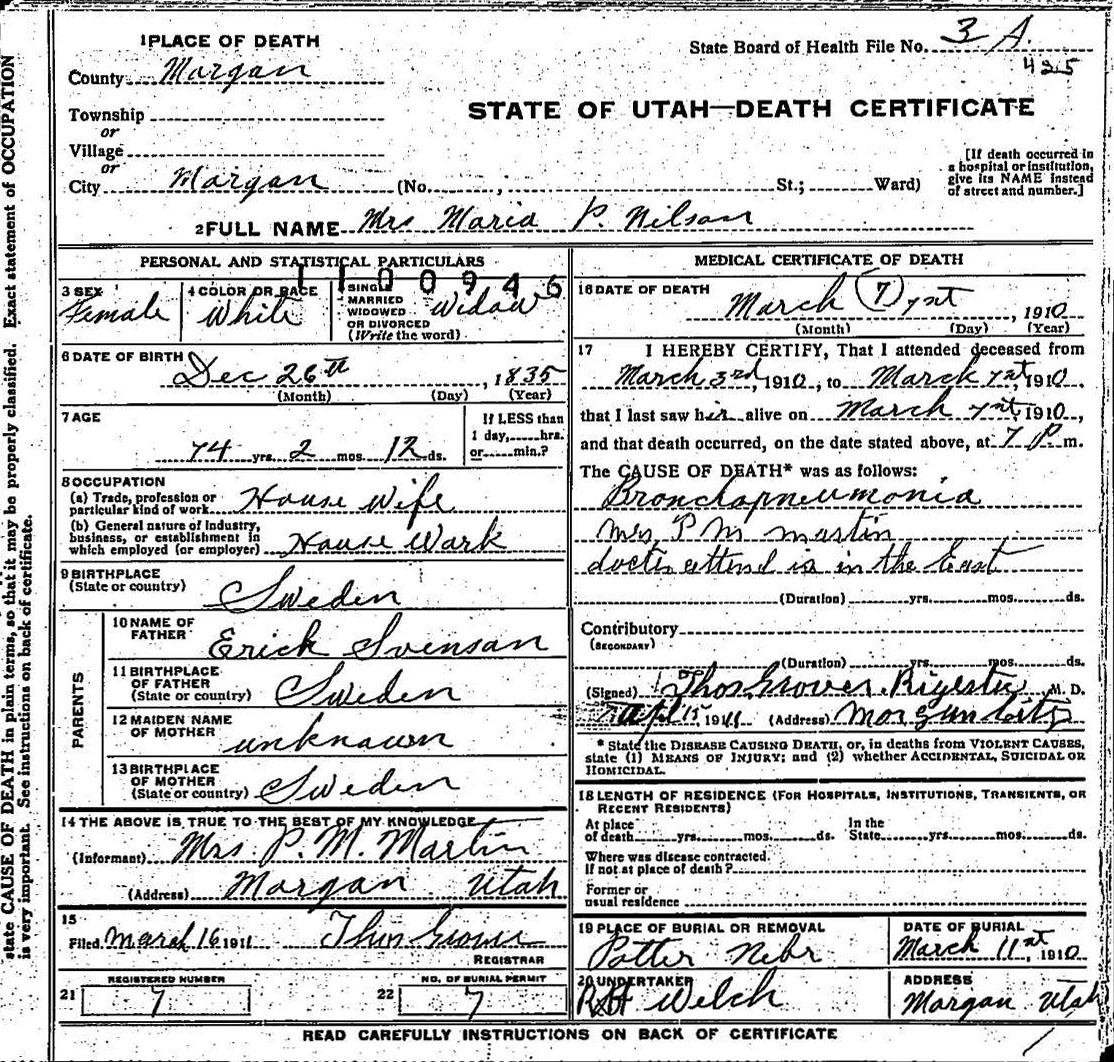 state CAUSE OF DEATH in plain terms, so that it may be properly classified. Exact statement of OCCUPATION
is very important. See instructions on back of certificate.
1 PLACE OF DEATH
County Morgan
Township
or
Village
or
City Morgan (No. , St.; Ward)
State Board of Health File No. 3 A.
425
STATE OF UTAH—DEATH CERTIFICATE
[If death occurred in
a hospital or institution,
give its NAME instead
of street and number.]
2 FULL NAME Mrs Maria P. Nilson
PERSONAL AND STATISTICAL PARTICULARS
1100946
3 SEX
Female
4 COLOR OR RACE
White
5 SINGLE
MARRIED
WIDOWED
OR DIVORCED
(Write the word)
Widow
6 DATE OF BIRTH
Dec 26th, 1835
(Month) (Day) (Year)
7 AGE
74 yrs. 2 mos. 12 ds.
If LESS than
1 day, hrs.
or min.?
8 OCCUPATION
(a) Trade, profession or
particular kind of work House Wife
(b) General nature of industry,
business, or establishment in
which employed (or employer) House Work
9 BIRTHPLACE
(State or country) Sweden
PARENTS
10 NAME OF
FATHER Erick Svenson
11 BIRTHPLACE
OF FATHER
(State or country) Sweden
12 MAIDEN NAME
OF MOTHER unknown
13 BIRTHPLACE
OF MOTHER
(State or country) Sweden
14 THE ABOVE IS TRUE TO THE BEST OF MY KNOWLEDGE
(Informant) Mrs. P. M. Martin
(Address) Morgan Utah
15
Filed March 16 1911 Thos Grover
REGISTRAR
REGISTERED NUMBER
21 7
NO. OF BURIAL PERMIT
22 7
MEDICAL CERTIFICATE OF DEATH
16 DATE OF DEATH
March (7) 7nst, 1910
(Month) (Day) (Year)
17 I HEREBY CERTIFY, That I attended deceased from
March 3rd, 1910, to March 7nst, 1910,
that I last saw her alive on March 7nst, 1910,
and that death occurred, on the date stated above, at 7 P m.
The CAUSE OF DEATH* was as follows:
Bronchopneumonia
Mrs P M Martin
doctor attend is in the East
(Duration) yrs. mos. ds.
Contributory
(SECONDARY)
(Duration) yrs. mos. ds.
(Signed) Thos Grover Rigester M. D.
Apl 15 1911 (Address) Morgan City
* State the DISEASE CAUSING DEATH, or, in deaths from VIOLENT CAUSES,
state (1) MEANS OF INJURY; and (2) whether ACCIDENTAL, SUICIDAL OR
HOMICIDAL.
18 LENGTH OF RESIDENCE (FOR HOSPITALS, INSTITUTIONS, TRANSIENTS, OR
RECENT RESIDENTS)
At place In the
of death yrs. mos. ds. State yrs. mos. ds.
Where was disease contracted.
If not at place of death?
Former or
usual residence
19 PLACE OF BURIAL OR REMOVAL
Potter Nebr
DATE OF BURIAL
March 11st, 1910
20 UNDERTAKER
Welch
ADDRESS
Morgan Utah
READ CAREFULLY INSTRUCTIONS ON BACK OF CERTIFICATE